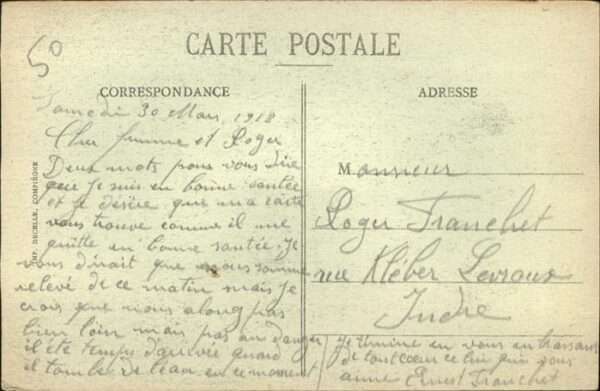 50
CARTE POSTALE
CORRESPONDANCE
ADRESSE
IMP. DECELLE, COMPIÈGNE
Samedi 30 Mars 1918
Cher femme et Roger
Deux mots pour vous dire
que je suis en bonne santée
et je désire que ma carte
vous trouve comme il me
quitte en bonne santée. Je
vous dirait que nous somme
relevé de ce matin mais je
crois que nous along pas
bien loin mais pas au danger
il été temps d'arrivée quard
il tombe de l'eau en ce moment
Je termine en vous embrassant
de tout coeur ce lui qui vous
aime Ernest Tranchet
Monsieur
Roger Tranchet
rue Kléber Levroux
Indre